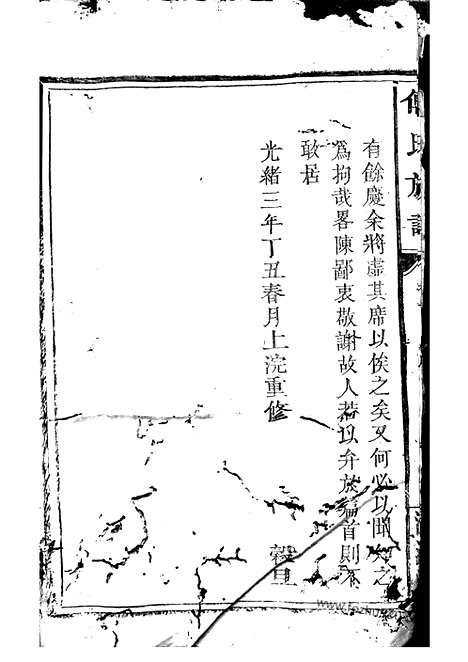 氏族譜
有餘慶余將虛其席以俟之矣又何必以聞知之
為拘哉畧陳鄙衷敬謝故人若以弁於篇首則不
敢居
光緒三年丁丑春月上浣重修 穀旦